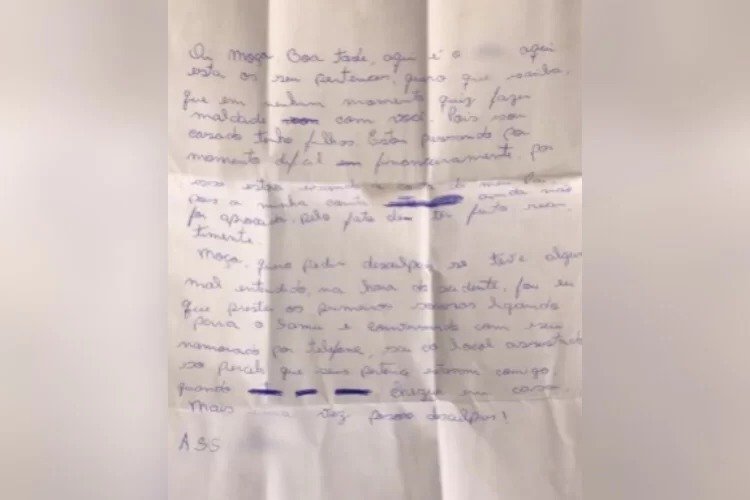 Oi, moça Boa tarde, aqui é o aqui
esta os seu pertences, quero que saiba,
que em nenhum momento quiz fazer
maldade com você. Pois sou
casado tenho filhos. Estou passando por
momento dificil financeiramente, por
isso estou usando a conta do meu Pai
pois a minha conta ainda não
foi aprovado pelo fato de ter feito recen
timente.
Moça, quero pedir desculpas se teve algum
mal entendido, na hora do acidente, fui eu
que prestei os primeiros socorros ligando
para o Samu e conversando com seu
namorado por telefone, sai do local assustado
so percebi que seus pertences estavam comigo
quando cheguei em casa.
Mais uma vez desculpas!
ASS